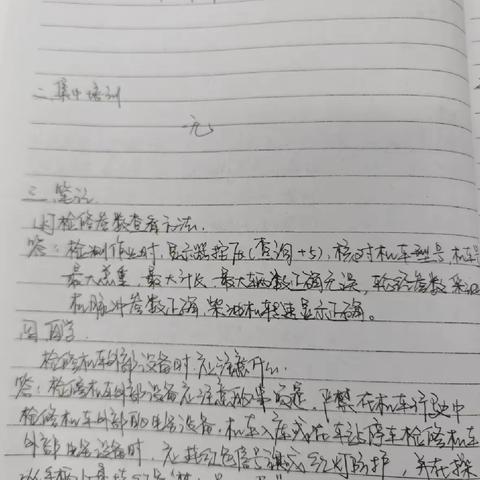 二 集中培训
无
三 笔记
检修参数查看方法.
答：检测作业时，显示器按压(查询+5)，核对机车型号 机车号
最大总重，最大计长，最大辆数正确无误，轮径参数 柴油
机脉冲参数正确，柴油机转速显示正确。
四 自学
检修机车外部设备时应注意什么.
答：检修机车外部设备应注意的常问题，严禁在机车行驶中
检修机车外部的电器设备，机车入库或在车站停车检修机车
外部电器设备时，应挂红色信号旗或红灯防护，并在操